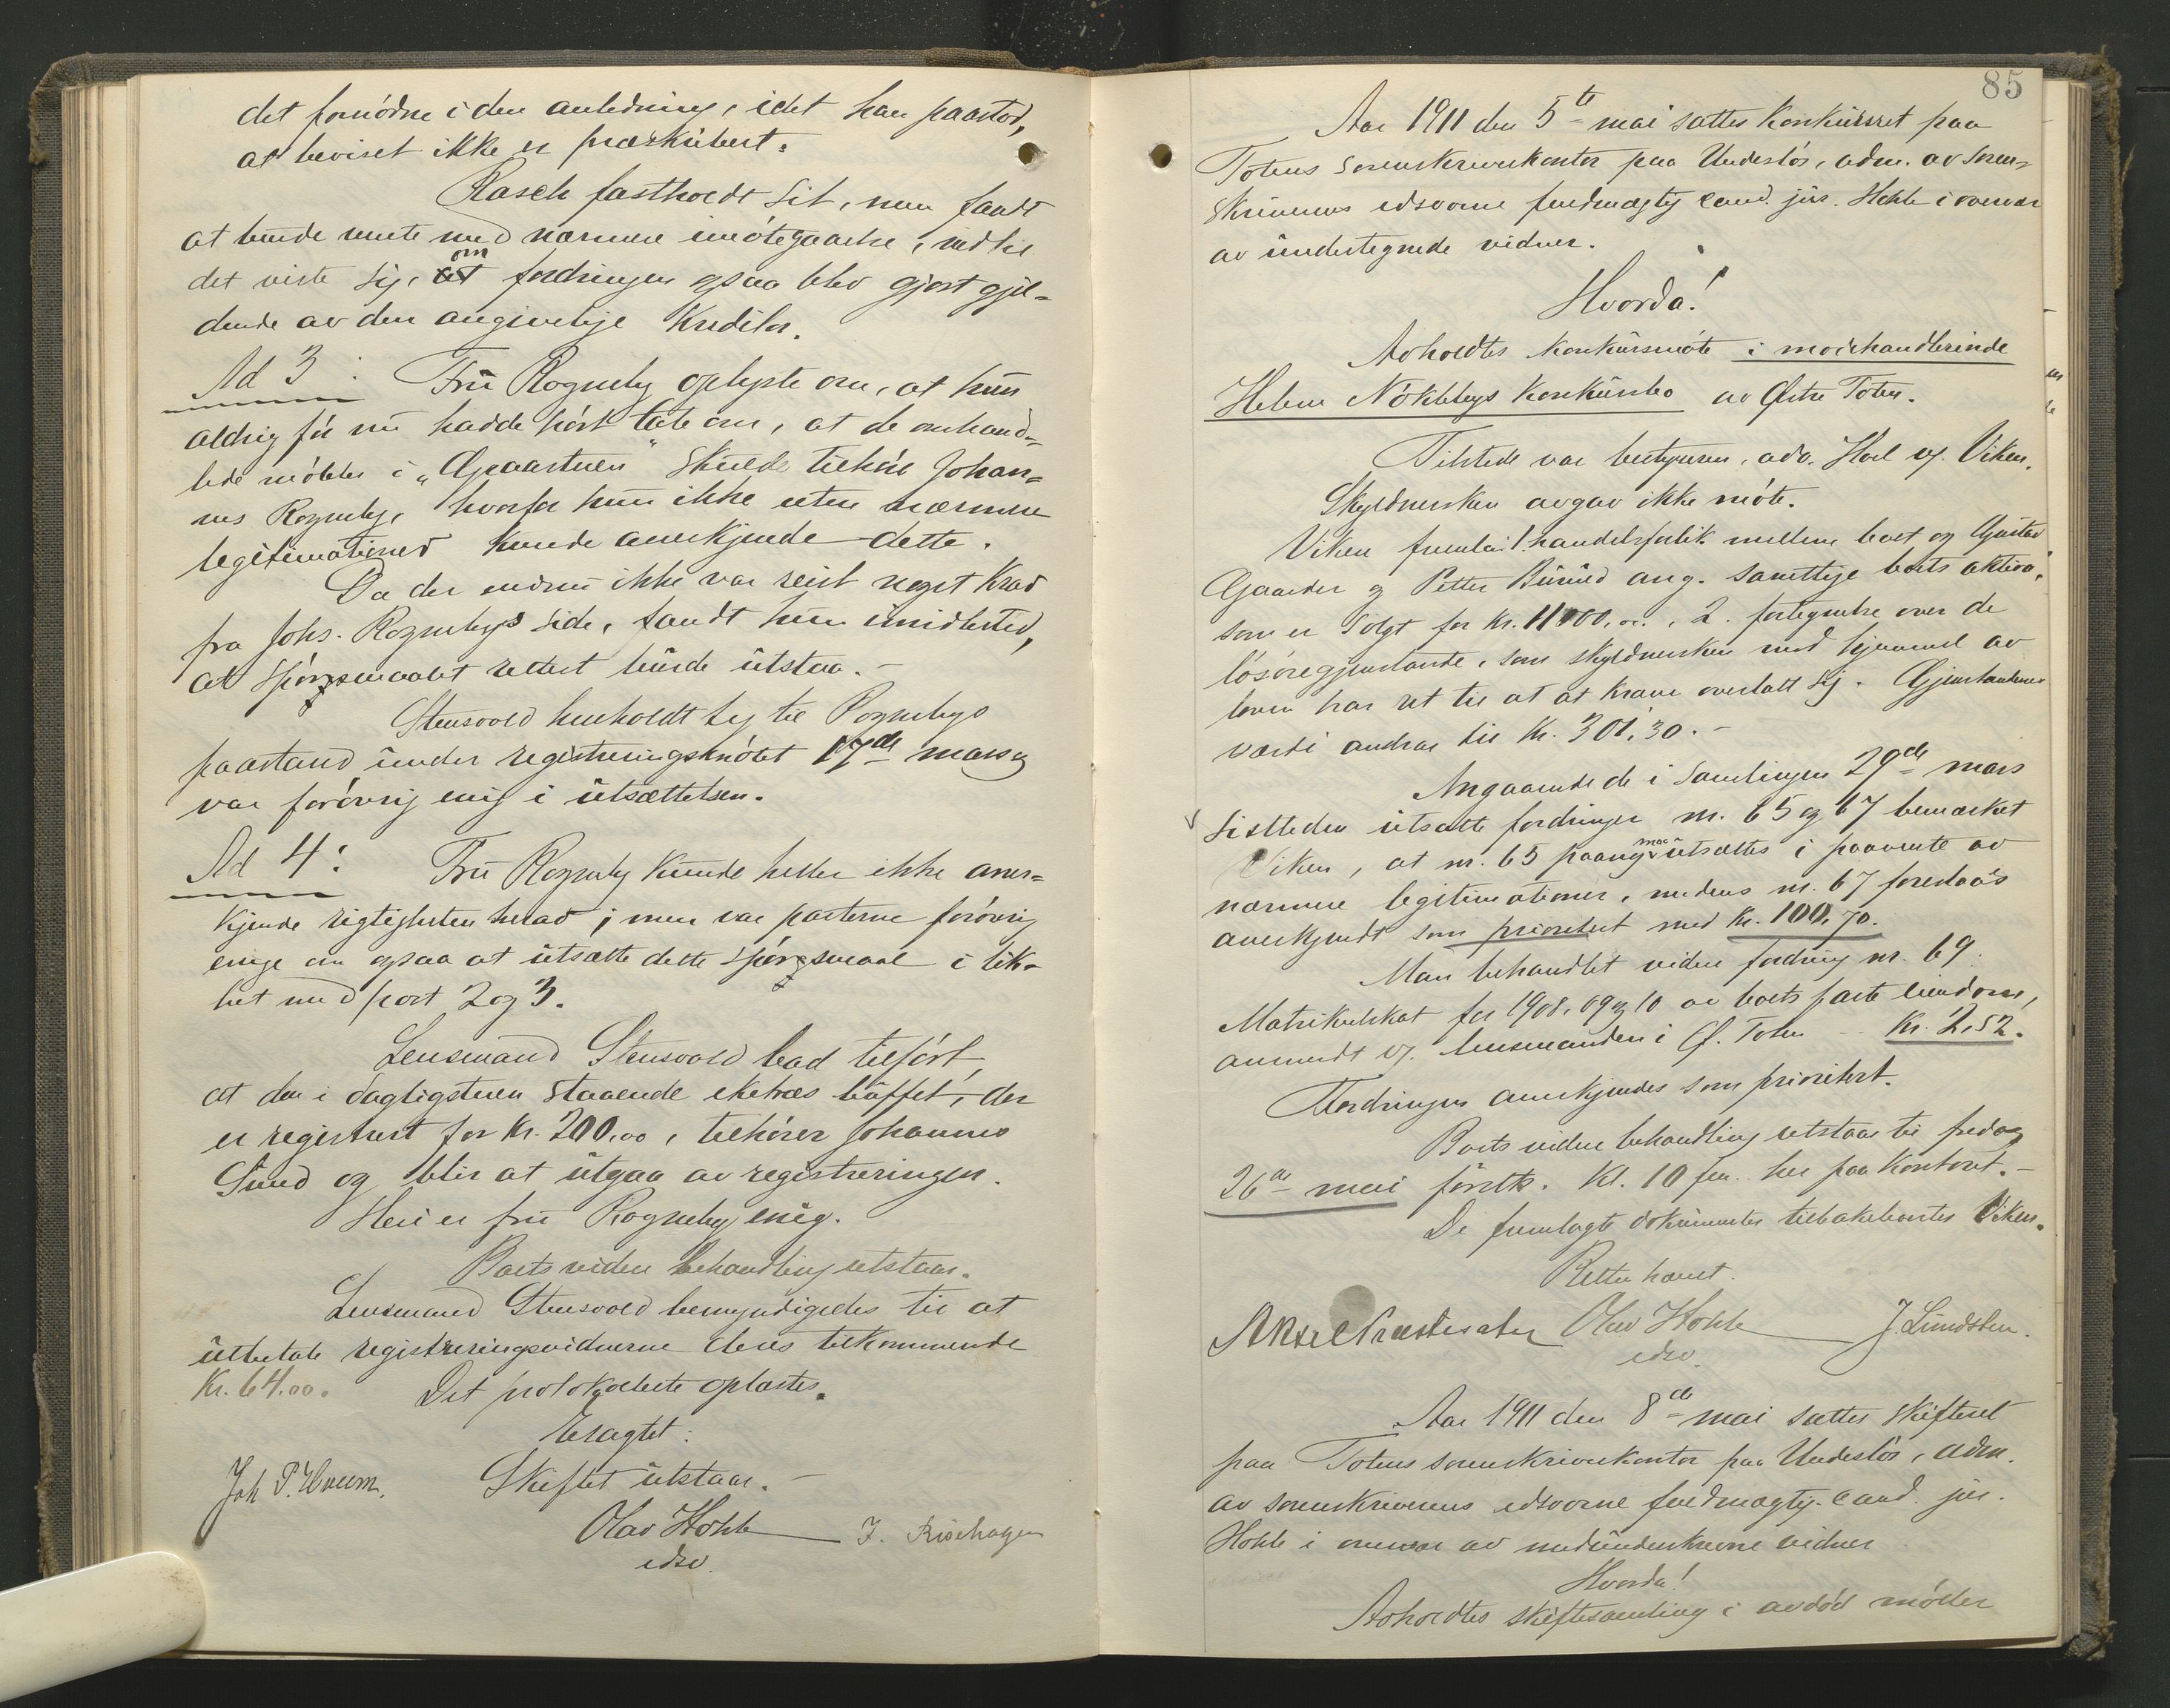 det fornødne i den anledning, idet han paastod,
at beviset ikke er prækludert.
Rasch fastholdt sit, men fandt
at burde vente med nærmere imøtegaaelse, indtil
det viste sig, om fordringen ogsaa blev gjort gjæl-
dende av den angivelige Kreditor.
Ad 3: Fru Rogneby oplyste om, at hun
aldrig før nu hadde hørt tale om, at de omhand-
lede møbler i "Graastuen" skulde tilhøre Johan-
nes Rogneby, hvorfor hun ikke uten nærmere
legitimationer kunde anerkjende dette.
Da der endnu ikke var reist noget Krav
fra Johs. Rognebys side, fandt hun imidlertid,
at spørgsmaalet rettest burde utstaa.-
Stensvold henholdt sig til Rognebys
paastand under registreringsmøtet 17de mars og
var forøvrig enig i utsættelsen.
Ad 4: Fru Rogneby kunde heller ikke aner-
kjende rigtigheten herav; men var parterne forøvrig
enige om ogsaa at utsætte dette spørgsmaal i lik-
het med post 2 og 3.
Lensmand Stensvold bad tilført,
at den i dagligstuen staaende eketræs buffet, der
er registrert for Kr. 200,00, tilhører Johannes
Sund og blir at utgaa av registreringen.
Heri er fru Rogneby enig.
Boets videre behandling utstaar.
Lensmand Stensvold bemyndigedes til at
utbetale registreringsvidnerne deres tilkommende
Kr. 64.00. Det protokollerte oplæstes.
Vedtaget:
Skiftet utstaar.-
Joh P. Hveem.
Olav Hohle
J. Rischagen
edsv.
85
Aar 1911 den 5te mai sattes Konkursret paa
Totens sorenskriverkontor paa Underslôs, adm. av soren-
skriverens edsvorne fuldmægtig cand. jur. Hohle i overvær
av undertegnede vidner.
Hvorda!
Avholdtes konkursmøte i modehandlerinde
Helene Nøklebys Konkursbo av Østre Toten.
Tilstede var bestyreren, adv. Hoel og Viken.
Skyldnersken avgav ikke møte.
Viken fremla 1. handelsforlik mellem boet og Gustav
Gaarder og Petter Burud ang. samtlige boets aktiva,
som er solgt for Kr. 11000,00., 2. fortegnelse over de
løsøregjenstande, som skyldnersken med hjemmel av
loven har ret til at at kræve overlatt sig. Gjenstandenes
værdi andrar til Kr. 301,30.-
Angaaende de i samlingen 29de mars
sistleden utsatte fordringer nr. 65 og 67 bemærket
Viken, at nr. 65 paany maa utsættes i paavente av
nærmere legitimationer, medens nr. 67 foreslaaes
anerkjendt som prioritert med Kr. 100,70.
Man behandlet videre fordring nr. 69.
Matrikulskat for 1908, 09 og 10 av boets faste eiendom,
anmeldt v. lensmanden i Ø. Toten - Kr. 2,52.
Fordringen anerkjendes som prioritert.
Boets videre behandling utstaar til fredag
26de mai førstk. Kl. 10 fm. her paa Kontoret.-
De fremlagte dokumenter tilbakelaantes Viken.
Retten hævet.
Aksel Præstesæter Olav Hohle J. Lundsten.
edsv.
Aar 1911 den 8de mai sattes skifteret
paa Totens sorenskriverkontor paa Underslôs, adm.
av sorenskriverens edsvorne fuldmægtig. cand. jur.
Hohle i overvær av medunderskrevne vidner
Hvorda!
Avholdtes skiftesamling i avdød møller